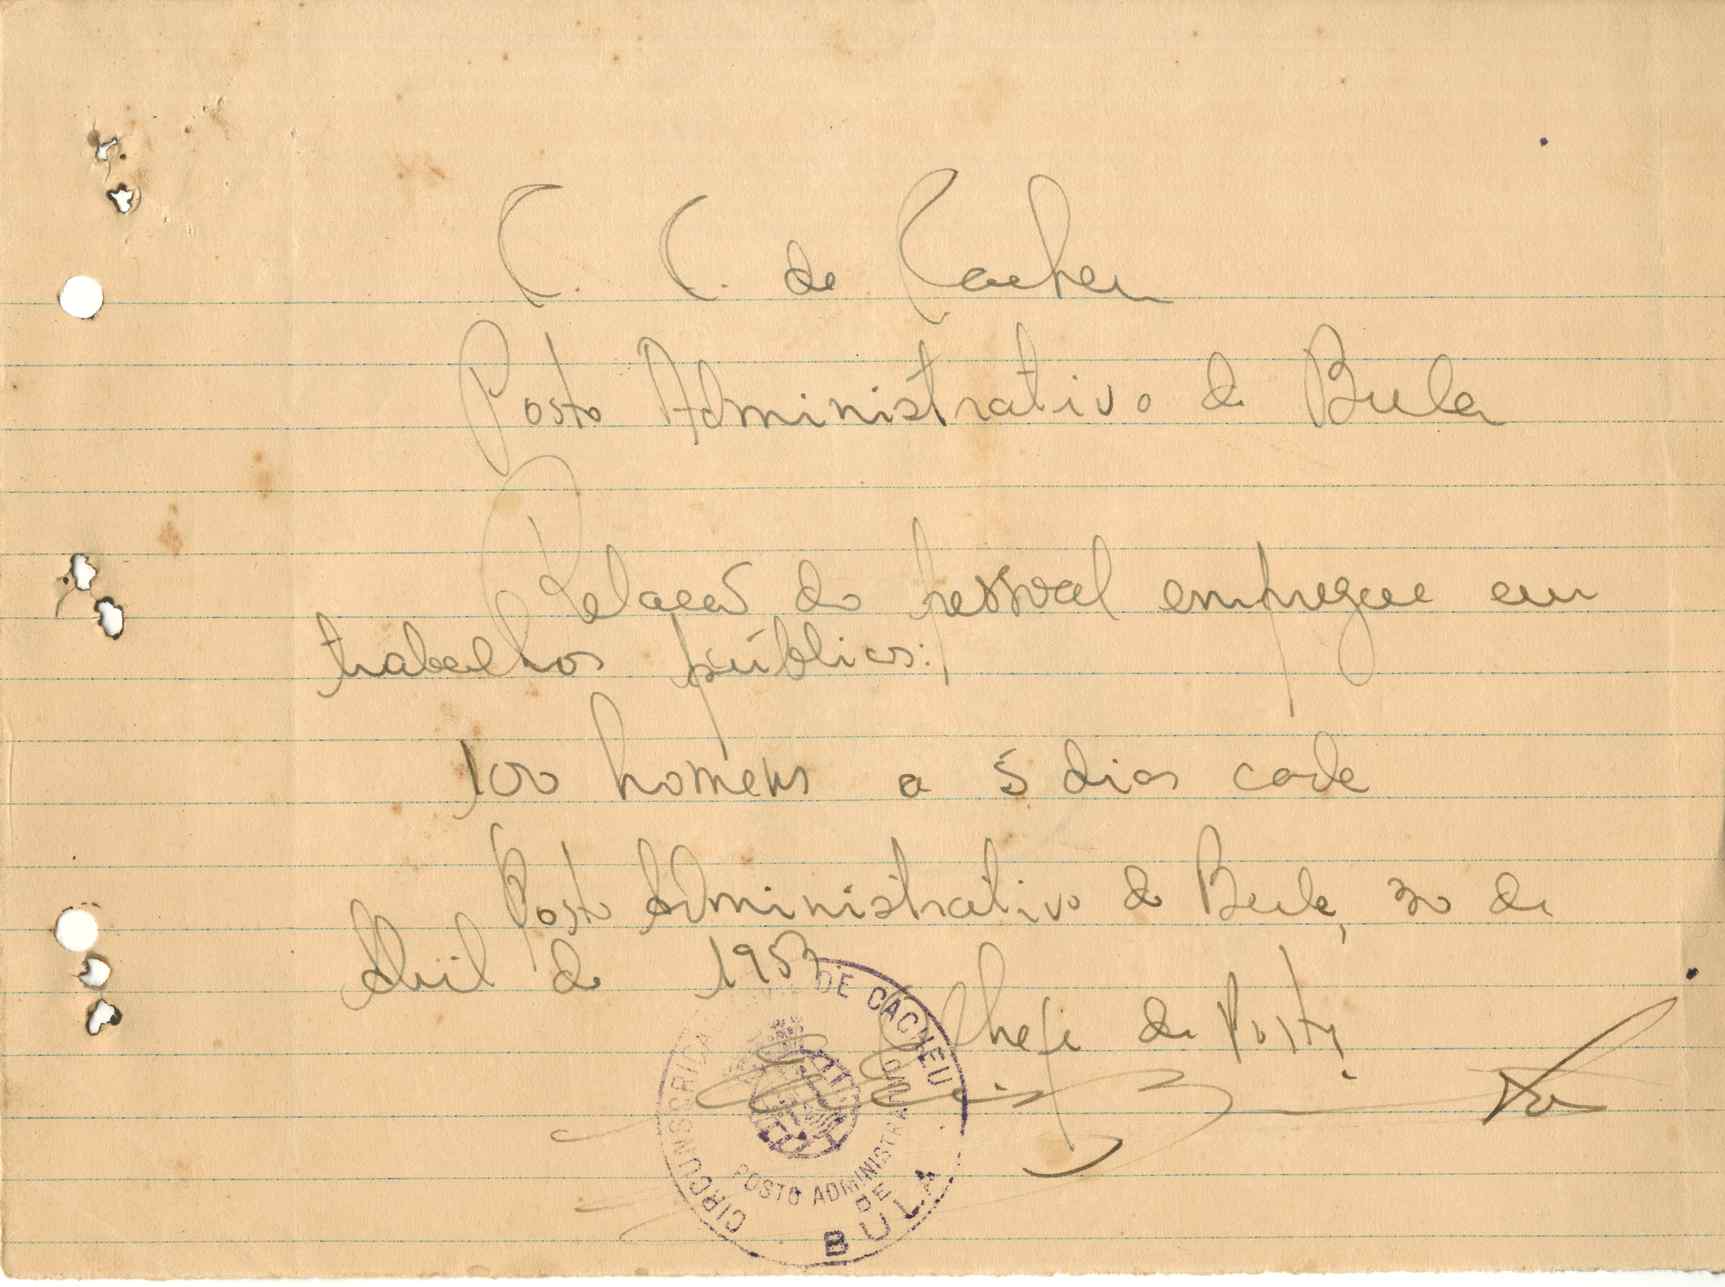 C. C. de Cacheu
Posto Administrativo de Bula
Relação do pessoal empregue em
trabalhos públicos:
100 homens a 5 dias cada
Posto Administrativo de Bula, 30 de
Abril de 1953
O Chefe de Posto,
CIRCUNSCRIÇÃO DE CACHEU
POSTO ADMINISTRATIVO
DE
BULA